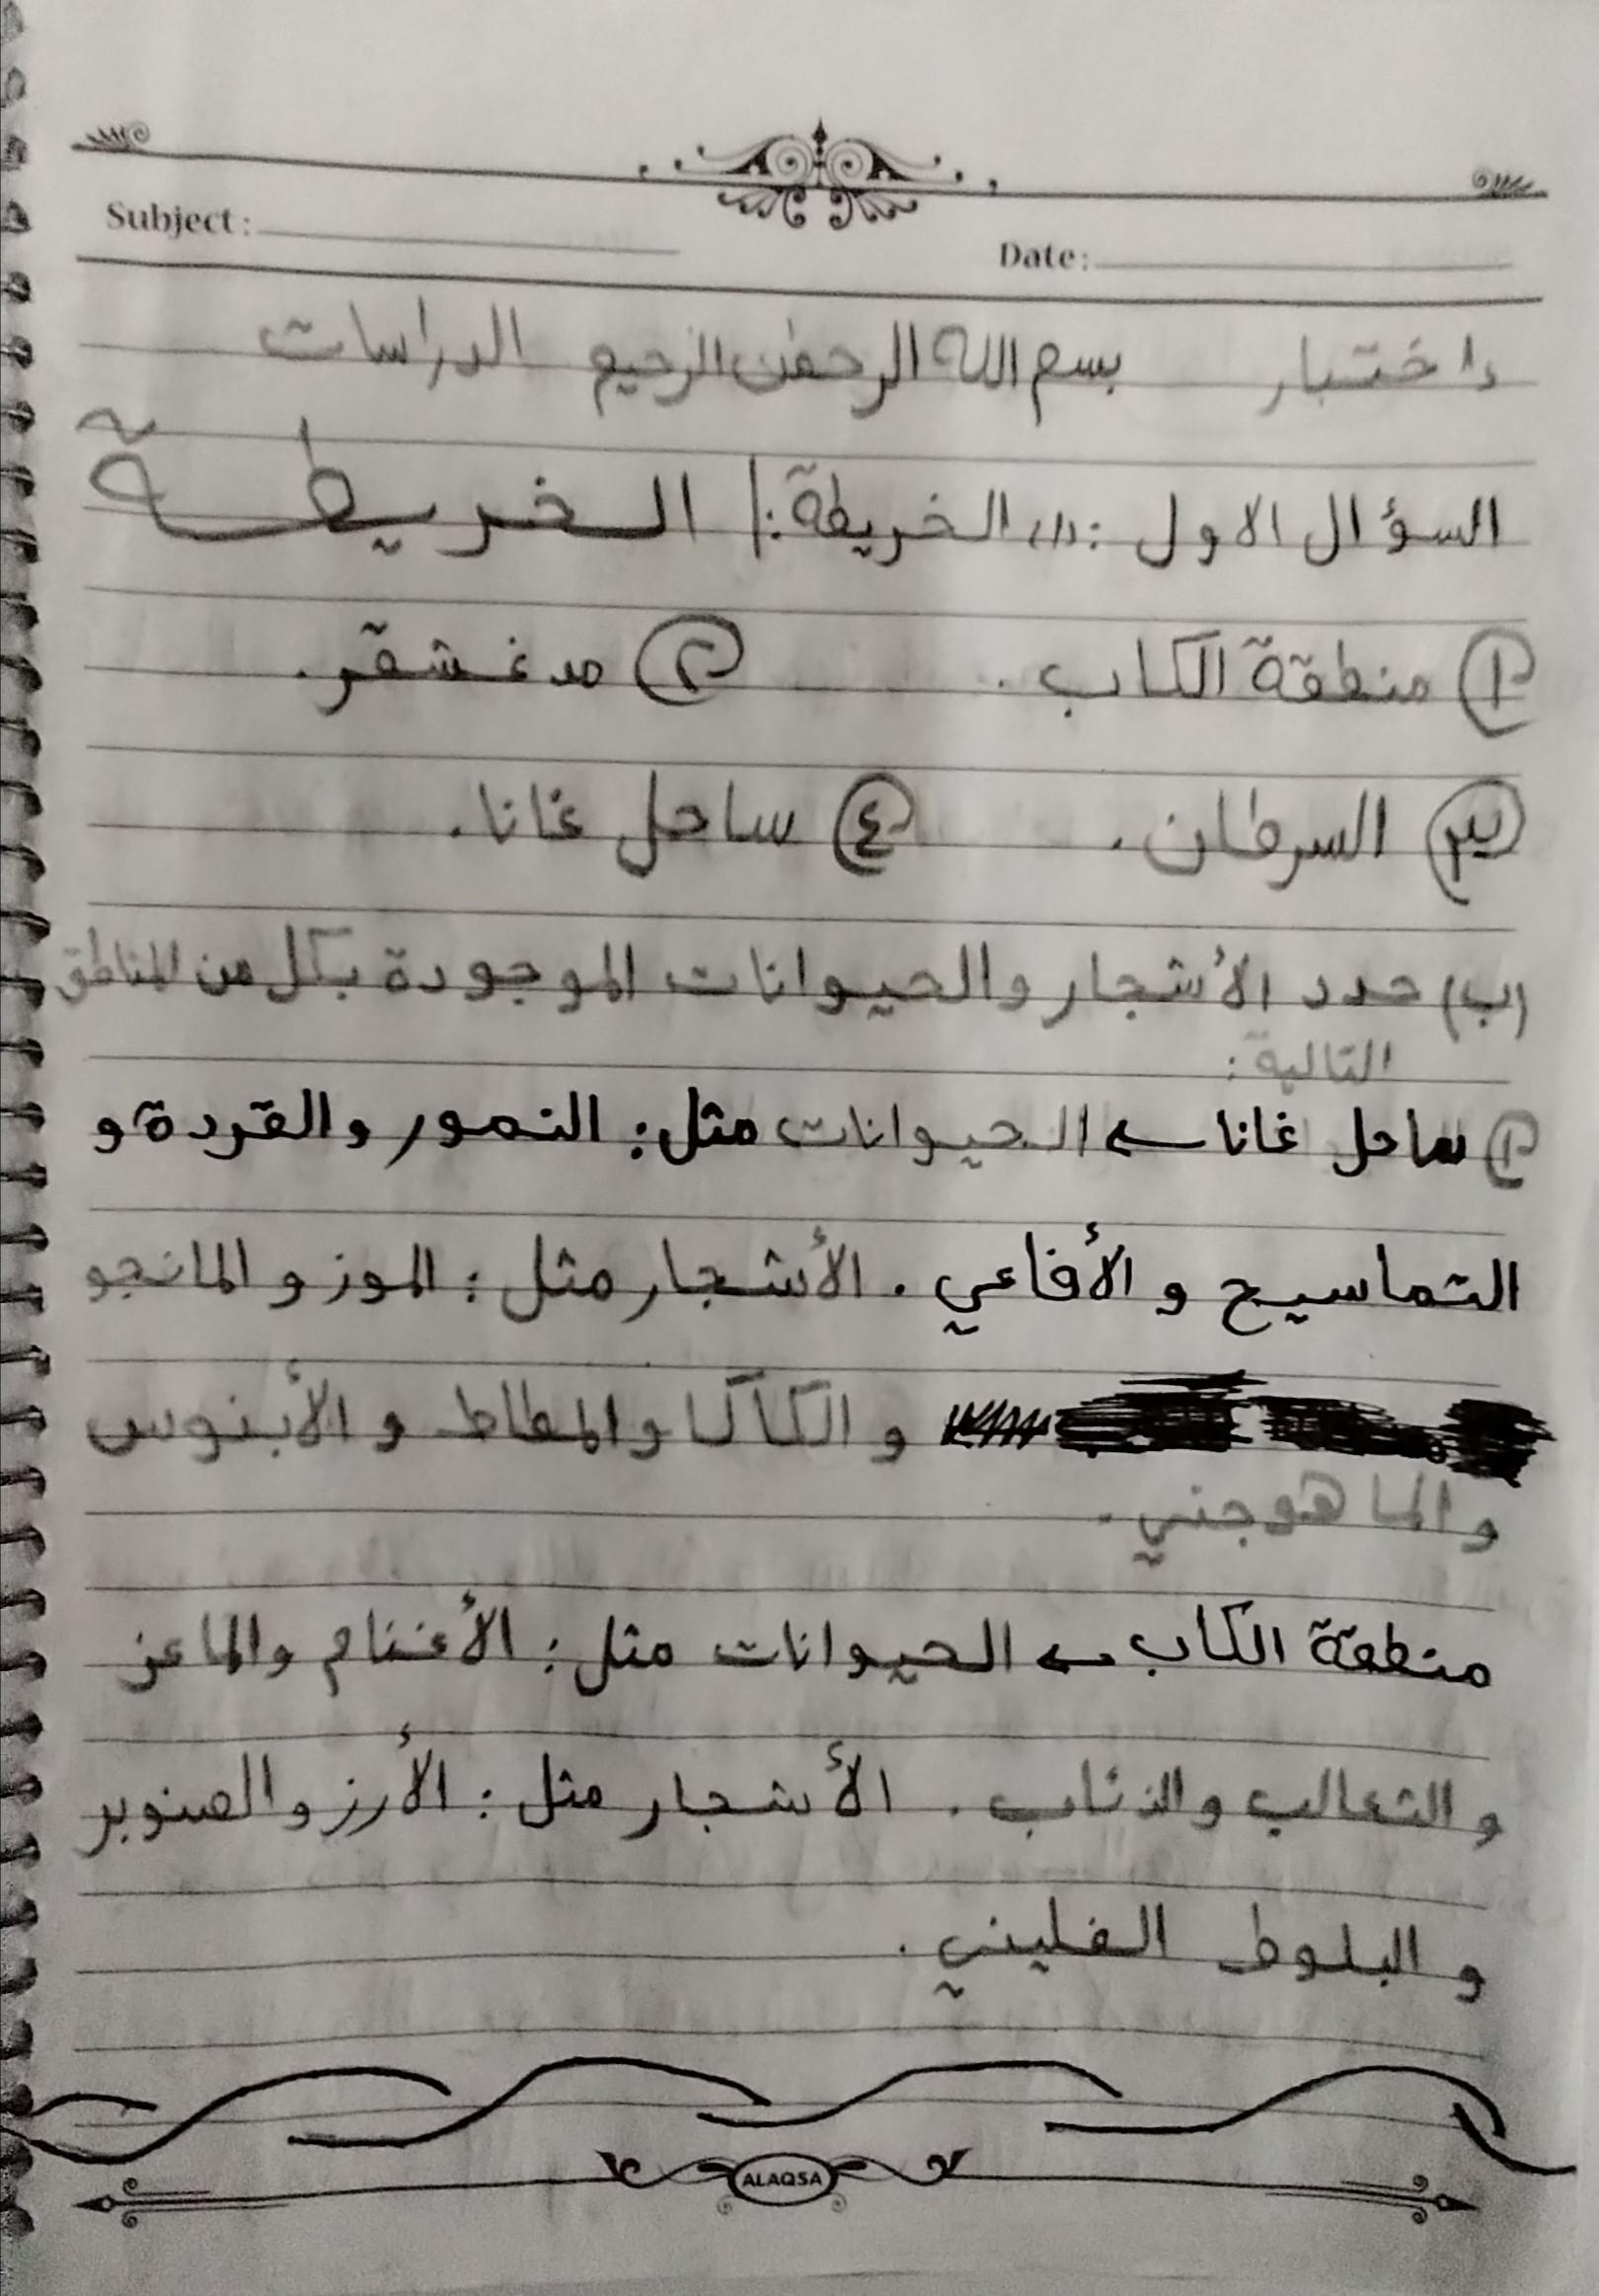 Subject:
Date:
اختبار بسم الله الرحمن الرحيم الدراسات
السؤال الاول :(١) الخريطة :| الخريطة
١ منطقة الكاب . ٢ مدغشقر .
٣ السرطان . ٤ ساحل غانا .
(ب) حدد الأشجار والحيوانات الموجودة بكل من المناطق
التالية :
١ ساحل غانا ← الحيوانات مثل : النمور والقردة و
التماسيح و الأفاعي . الأشجار مثل : الموز و المانجو
و الكاكا والمطاط و الأبنوس
والماهوجني .
منطقة الكاب ← الحيوانات مثل : الأغنام والماعز
والثعالب والذئاب . الأشجار مثل : الأرز والصنوبر
والبلوط الفليني .
ALAQSA